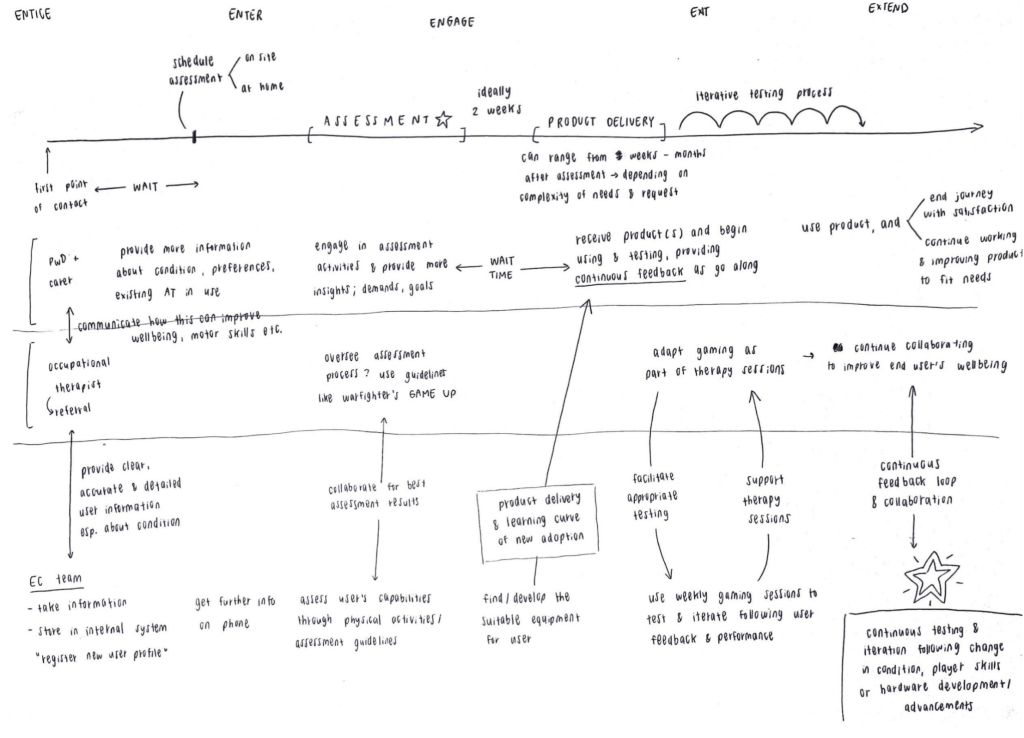 ENTICE
ENTER
ENGAGE
EXIT
EXTEND
schedule
assessment
on site
at home
ASSESSMENT
ideally
2 weeks
PRODUCT DELIVERY
iterative testing process
can range from weeks - months
after assessment → depending on
complexity of needs & request
first point
of contact
← WAIT →
PWD +
carer
provide more information
about condition, preferences,
existing AT in use
engage in assessment
activities & provide more
insights; demands, goals
← WAIT →
TIME
receive product(s) and begin
using & testing, providing
continuous feedback as go along
use product, and
end journey
with satisfaction
continue working
& improving product
to fit needs
communicate how this can improve
wellbeing, motor skills etc.
occupational
therapist
referral
oversee assessment
process? use guidelines
like warfighter's GAME UP
adapt gaming as
part of therapy sessions
→ continue collaborating
to improve end user's wellbeing
provide clear,
accurate & detailed
user information
esp. about condition
collaborate for best
assessment results
product delivery
& learning curve
of new adoption
facilitate
appropriate
testing
support
therapy
sessions
continuous
feedback loop
& collaboration
EC team
- take information
- store in internal system
"register new user profile"
get further info
on phone
assess user's capabilities
through physical activities/
assessment guidelines
find/develop the
suitable equipment
for user
use weekly gaming sessions to
test & iterate following user
feedback & performance
continuous testing &
iteration following change
in condition, player skills
or hardware development/
advancements